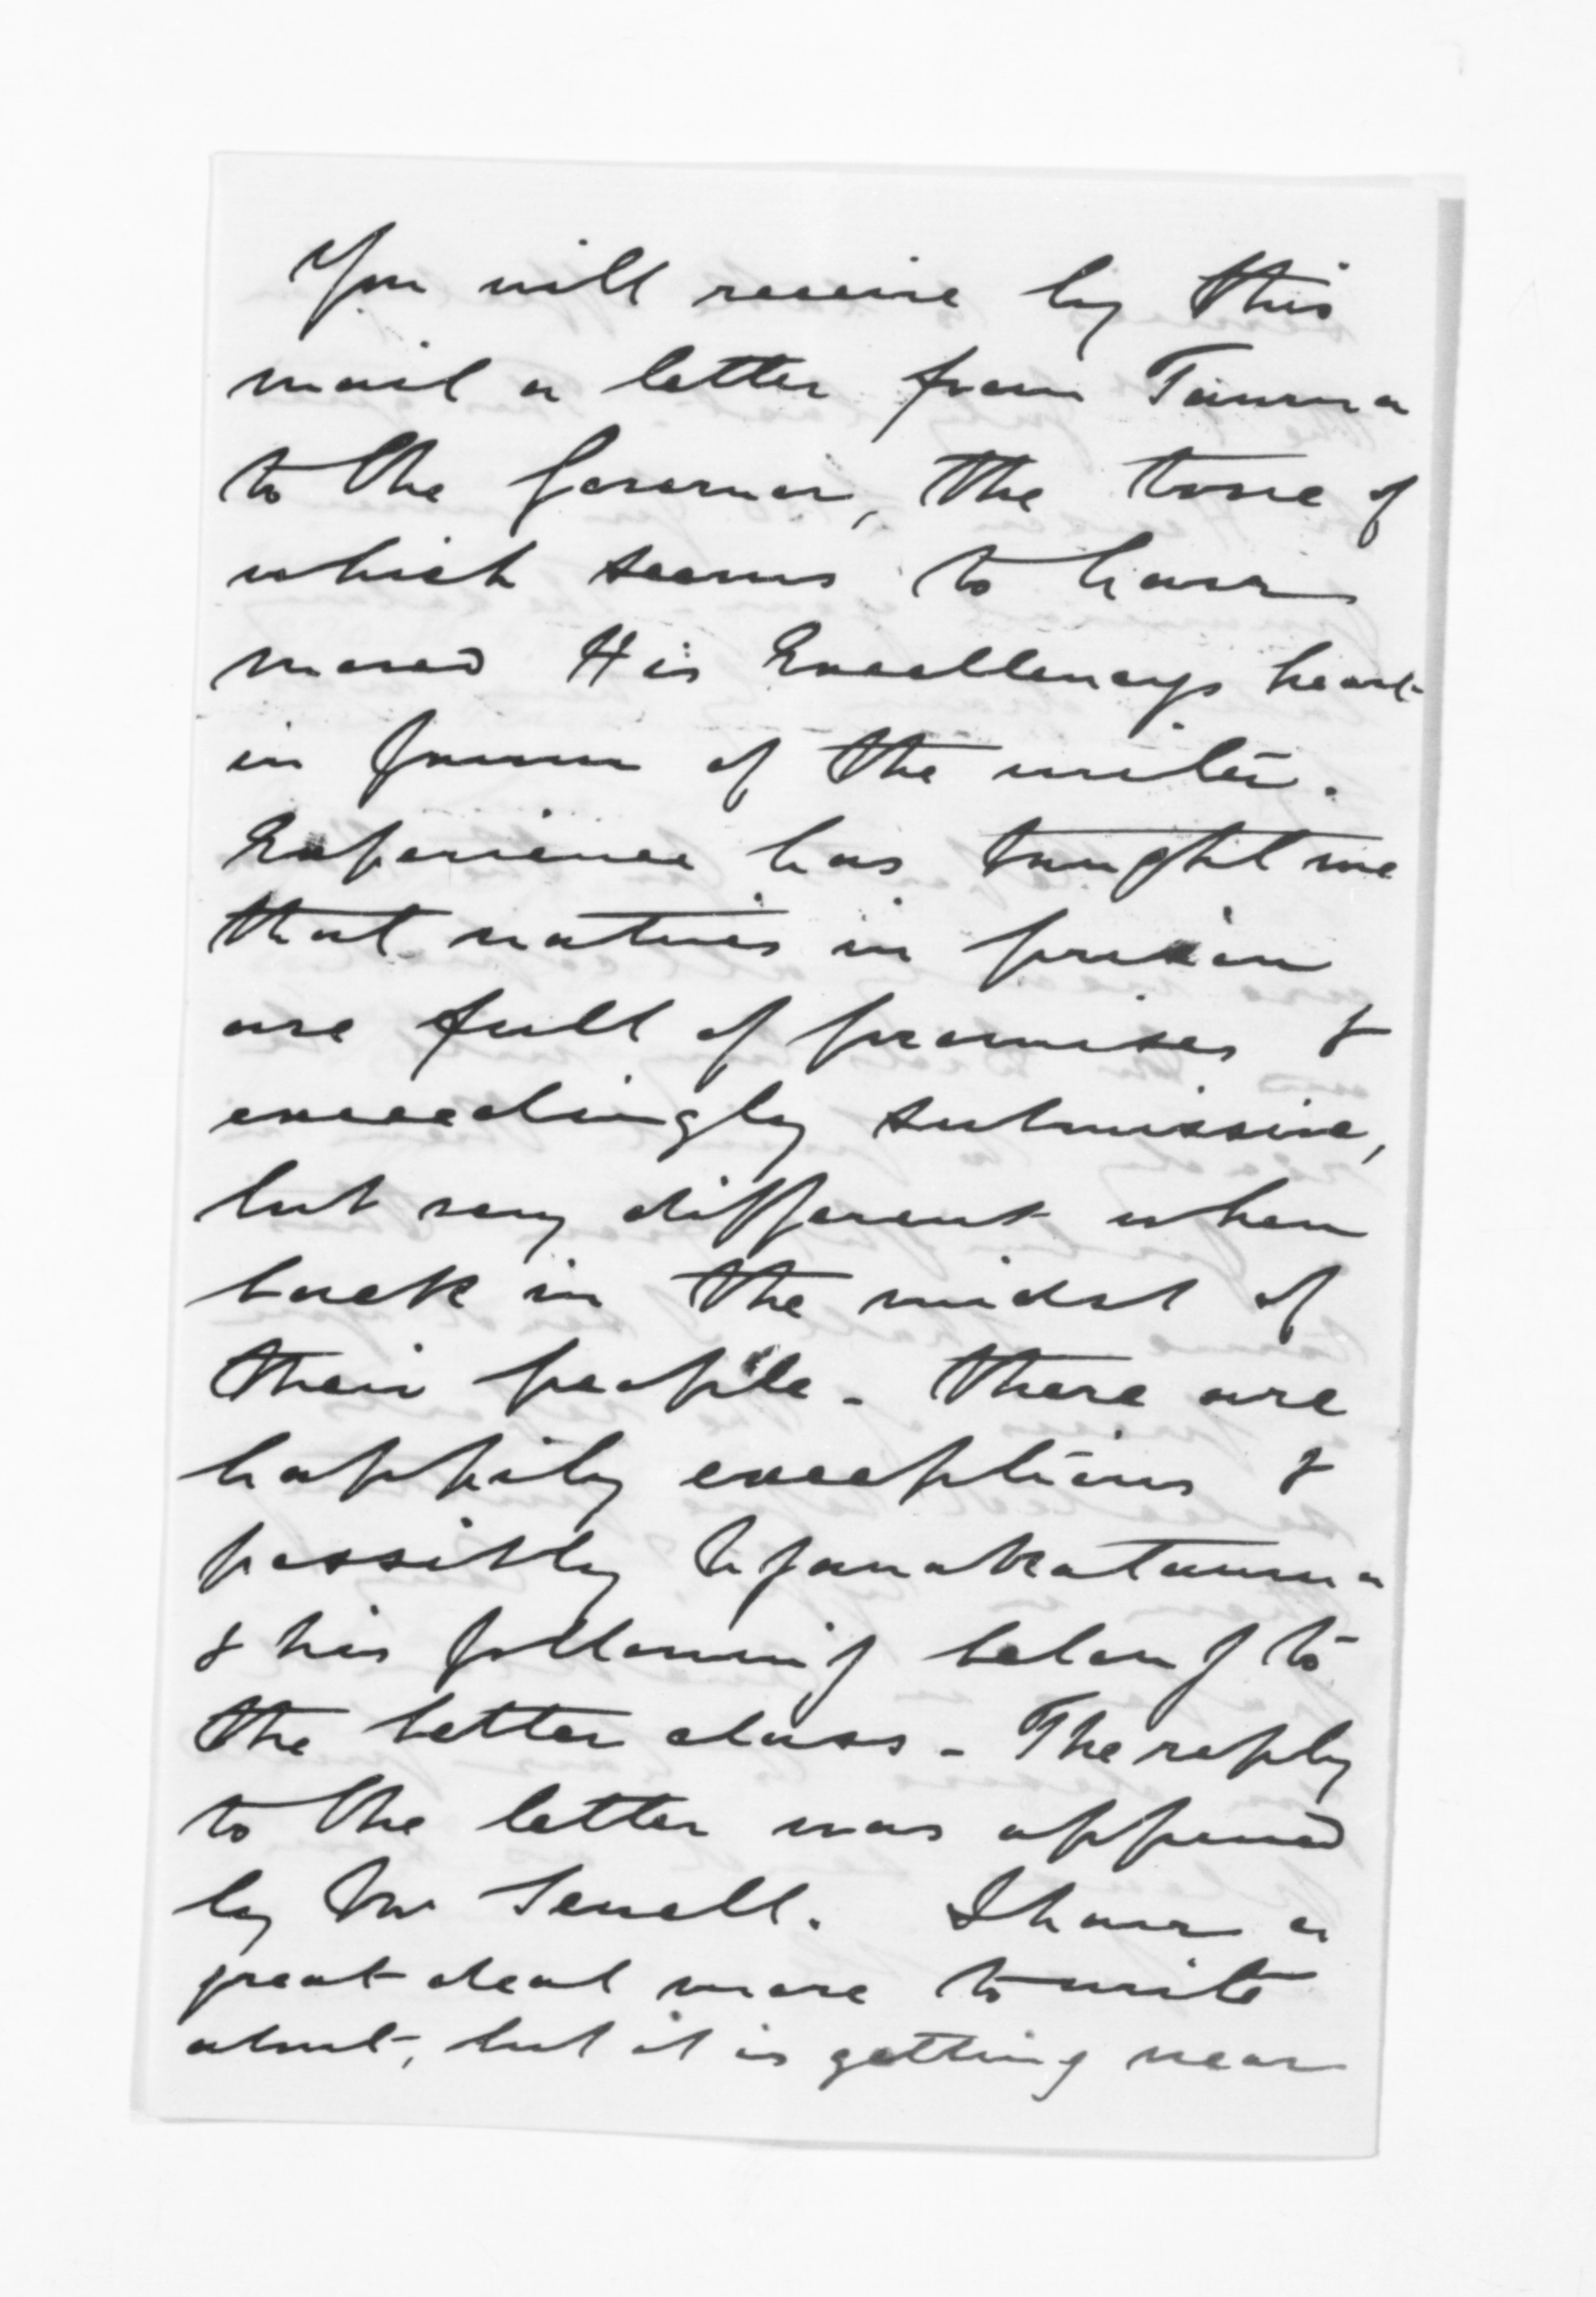 You will receive by this
mail a letter from Tauwa
to the Governor, the tone of
which seems to have
moved His Excellencys heart
in favour of the writer.
Experience has taught me
that natives in prison
are full of promises &
exceedingly submissive,
but very different when
back in the midst of
their people - there are
happily exceptions &
possibly
& his following belong to
the better class - The reply
to the letter was approved
by Mr Sewell. I have a
great deal more to write
about, but it is getting near